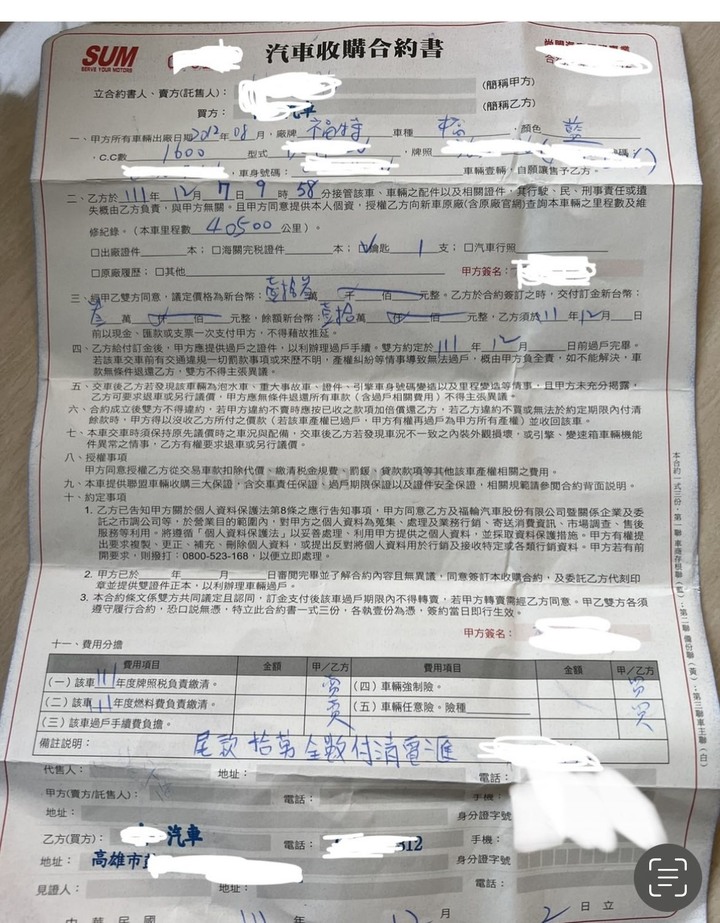 SUM
SERVE YOUR MOTORS
汽車收購合約書
立合約書人、賣方(託售人)：
(簡稱甲方)
買方：
汽車
(簡稱乙方)
一、甲方所有車輛出廠日期2012年08月，廠牌 福特 車種 ，顏色 藍
，C.C數 1600 型式 牌照 號碼
，車身號碼： 車輛壹輛，自願讓售予乙方。
二、乙方於111年12月7日9時58分接管該車、車輛之配件以及相關證件，其行駛、民、刑事責任或遺
失概由乙方負責，與甲方無關。且甲方同意提供本人個資，授權乙方向新車原廠(含原廠官網)查詢本車輛之里程數及維
修紀錄。(本車里程數 40500 公里)。
□出廠證件 本；□海關完稅證件 本；☑鑰匙 1 支；□汽車行照
□原廠履歷；□其他 甲方簽名：
三、經甲乙雙方同意，議定價格為新台幣：壹拾叁萬 仟 佰 元整。乙方於合約簽訂之時，交付訂金新台幣：
叁 萬 仟 佰 元整，餘額新台幣：壹拾萬 仟 佰 元整，乙方須於111年12月 日
前以現金、匯款或支票一次支付甲方，不得藉故推延。
四、乙方給付訂金後，甲方應提供過戶之證件，以利辦理過戶手續。雙方約定於111年12月 日前過戶完畢。
若該車交車前有交通違規一切罰款事項或來歷不明，產權糾紛等情事導致無法過戶，概由甲方負全責，如不能解決，車
款無條件退還乙方，雙方不得主張異議。
五、交車後乙方若發現該車輛為泡水車、重大事故車、證件、引擎車身號碼變造以及里程變造等情事，且甲方未充分揭露，
乙方可要求退車或另行議價，甲方應無條件退還所有車款(含過戶相關費用)不得主張異議。
六、合約成立後雙方不得違約，若甲方違約不賣時應按已收之款項加倍償還乙方，若乙方違約不買或無法於約定期限內付清
餘款時，甲方得以沒收乙方所付之價款(若該車產權已過戶，甲方有權再過戶為甲方所有產權)並收回該車。
七、本車交車時須保持原先議價時之車況與配備，交車後乙方若發現車況不一致之內裝外觀損壞，或引擎、變速箱車輛機能
件異常之情事，乙方有權要求退車或另行議價。
八、授權事項
甲方同意授權乙方從交易車款扣除代償、繳清稅金規費、罰鍰、貸款款項等其他該車產權相關之費用。
九、本車提供聯盟車輛收購三大保證，含交車責任保證、過戶期限保證以及證件安全保證，相關規範請參閱合約背面說明。
十、約定事項
1. 乙方已告知甲方關於個人資料保護法第8條之應行告知事項，甲方同意乙方及福輪汽車股份有限公司暨關係企業及委
託之市調公司等，於營業目的範圍內，對甲方之個人資料為蒐集、處理及業務行銷、寄送消費資訊、市場調查、售後
服務等利用。將遵循「個人資料保護法」以妥善處理、利用甲方提供之個人資料，並採取資料保護措施。甲方有權提
出要求複製、更正、補充、刪除個人資料，或提出反對將個人資料用於行銷及接收特定或各類行銷資料。甲方若有前
開要求，則撥打：0800-523-168，以便立即處理。
2. 甲方已於 年 月 日審閱完畢並了解合約內容且無異議，同意簽訂本收購合約，及委託乙方代刻印
章並提供雙證件正本，以利辦理車輛過戶。
3. 本合約條文係雙方共同議定且認同，訂金支付後該車過戶期限內不得轉賣，若甲方轉賣需經乙方同意。甲乙雙方各須
遵守履行合約，恐口說無憑，特立此合約書一式三份，各執壹份為憑，簽約當日即行生效。
甲方簽名：
十一、費用分擔
費用項目 金額 甲／乙方 費用項目 金額 甲／乙方
(一) 該車111年度牌照稅負責繳清。 買 (四) 車輛強制險。 買
(二) 該車111年度燃料費負責繳清。 買 (五) 車輛任意險。險種 買
(三) 該車過戶手續費負擔。
備註說明：
尾款拾萬全數付清電匯
代售人： 地址： 電話：
甲方(賣方/託售人)： 電話： 手機：
地址： 身分證字號
乙方(買方)： 汽車 電話： 312 手機：
地址：高雄市 身分證字號
見證人： 地址： 電話：
中 華 民 國 111 年 12 月 2 日 立